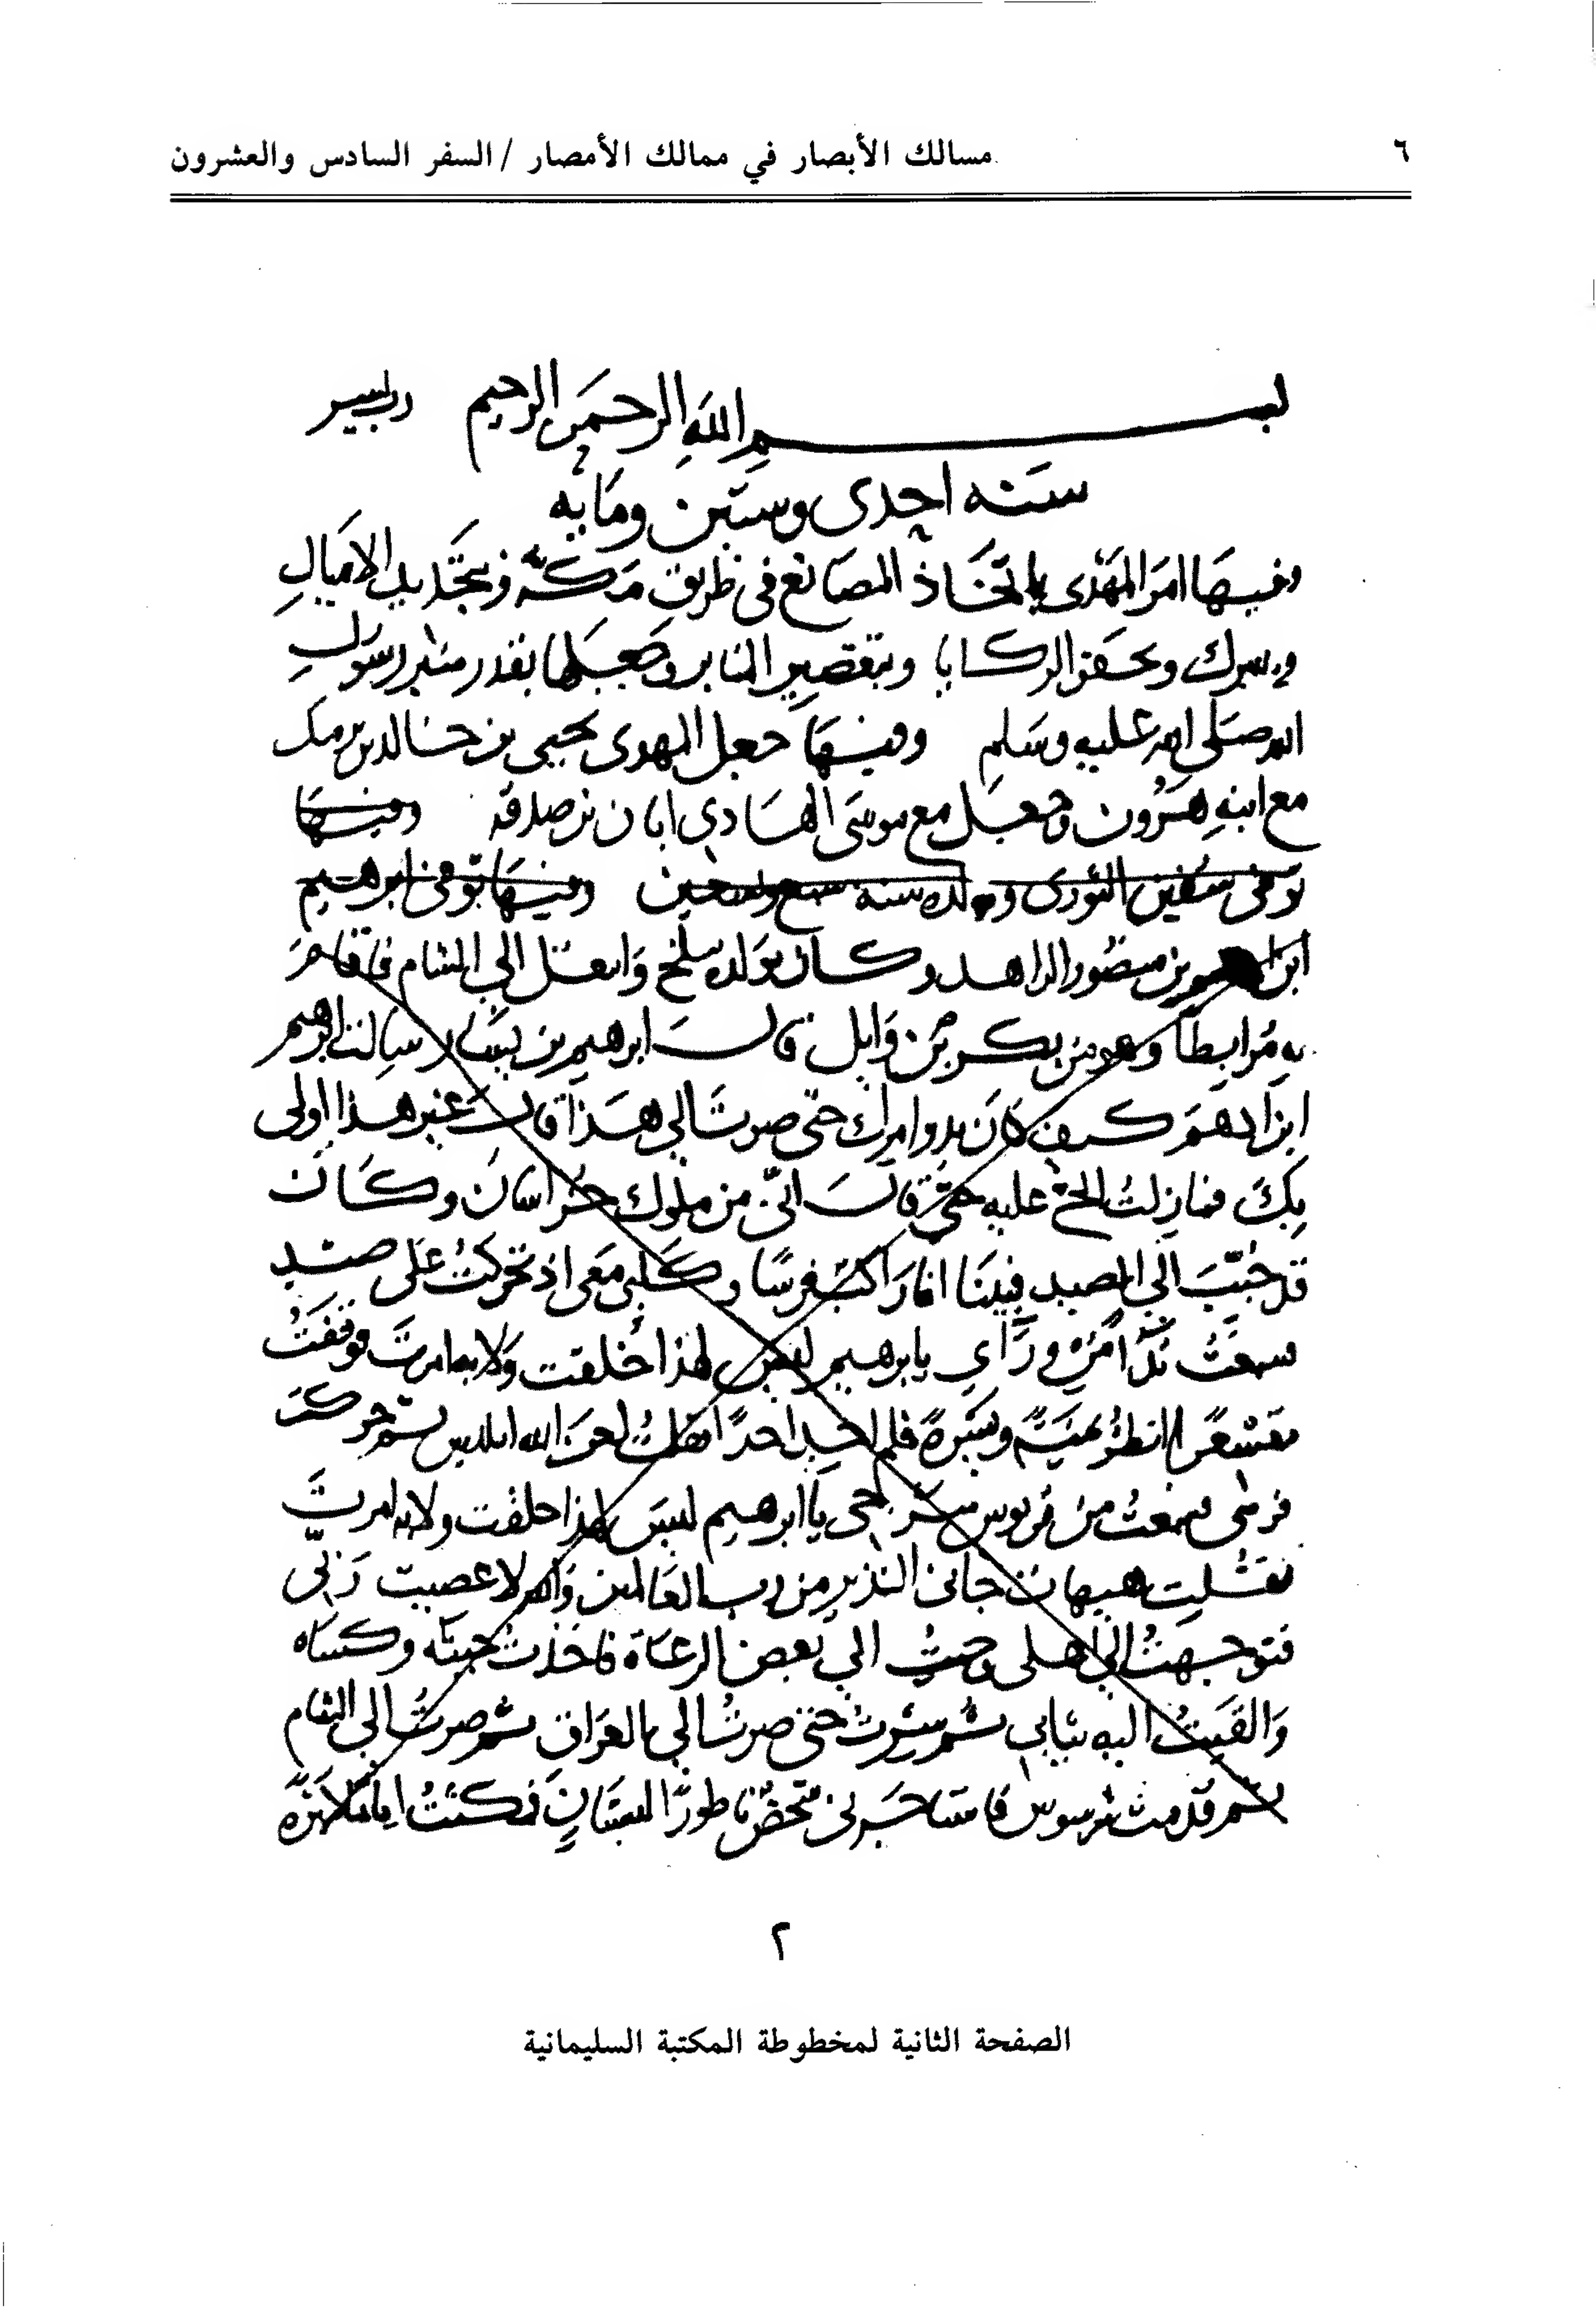 ٦
مسالك الأبصار في ممالك الأمصار / السفر السادس والعشرون
بسم الله الرحمن الرحيم رب يسر
سنه احدى وستين ومايه
وفيها امر المهدى باتخاذ المصانع فى طريق مكة وبتجديد الاميال
والبرك وبحفر الركايا وبتقصير المنابر وجعلها بقدر منبر رسول
الله صلى الله عليه وسلم وفيها جعل المهدى يحيى بن خالد بن برمك
مع ابنه هرون وجعل مع موسى الهادي ابان بن صدقة وفيها
توفى سفين الثورى ومولده سنة سبع وتسعين وفيها توفى ابرهيم
ابن ادهم بن منصور الزاهد وكان مولده ببلخ وانتقل الى الشام فاقام
به مرابطا وهو من بكر بن وايل قال ابرهيم بن بشار سالت ابرهيم
ابن ادهم كيف كان بدو امرك حتى صرت الى هذا قال غير هذا اولى
بك فما زلت الح عليه حتى قال انى من ملوك خراسان وكان
قد حبب الى الصيد فبينا انا راكب فرسا وكلبى معى اذ تحركت على صيد
سمعت ندآ من ورآى يابرهيم ليس لهذا خلقت ولا به امرت فوقفت
مقشعرا انظر يمنة ويسرة فلم اجد احدا فقلت لعن الله ابليس ثم حركت
فرسى فسمعت من قربوس سرجى يا ابرهيم ليس لهذا خلقت ولا به امرت
فقلت هيهات جانى النذير من رب العالمين والله لا عصيت ربى
فتوجهت الى اهلى وجيت الى بعض الرعاة فاخذت جبته وكساه
والقيت اليه ثيابى ثم سرت حتى صرت الى العراق ثم صرت الى الشام
ثم قدمت طرسوس فاستاجرنى شخص ناطورا لبستان فمكثت اياما
٢
الصفحة الثانية لمخطوطة المكتبة السليمانية